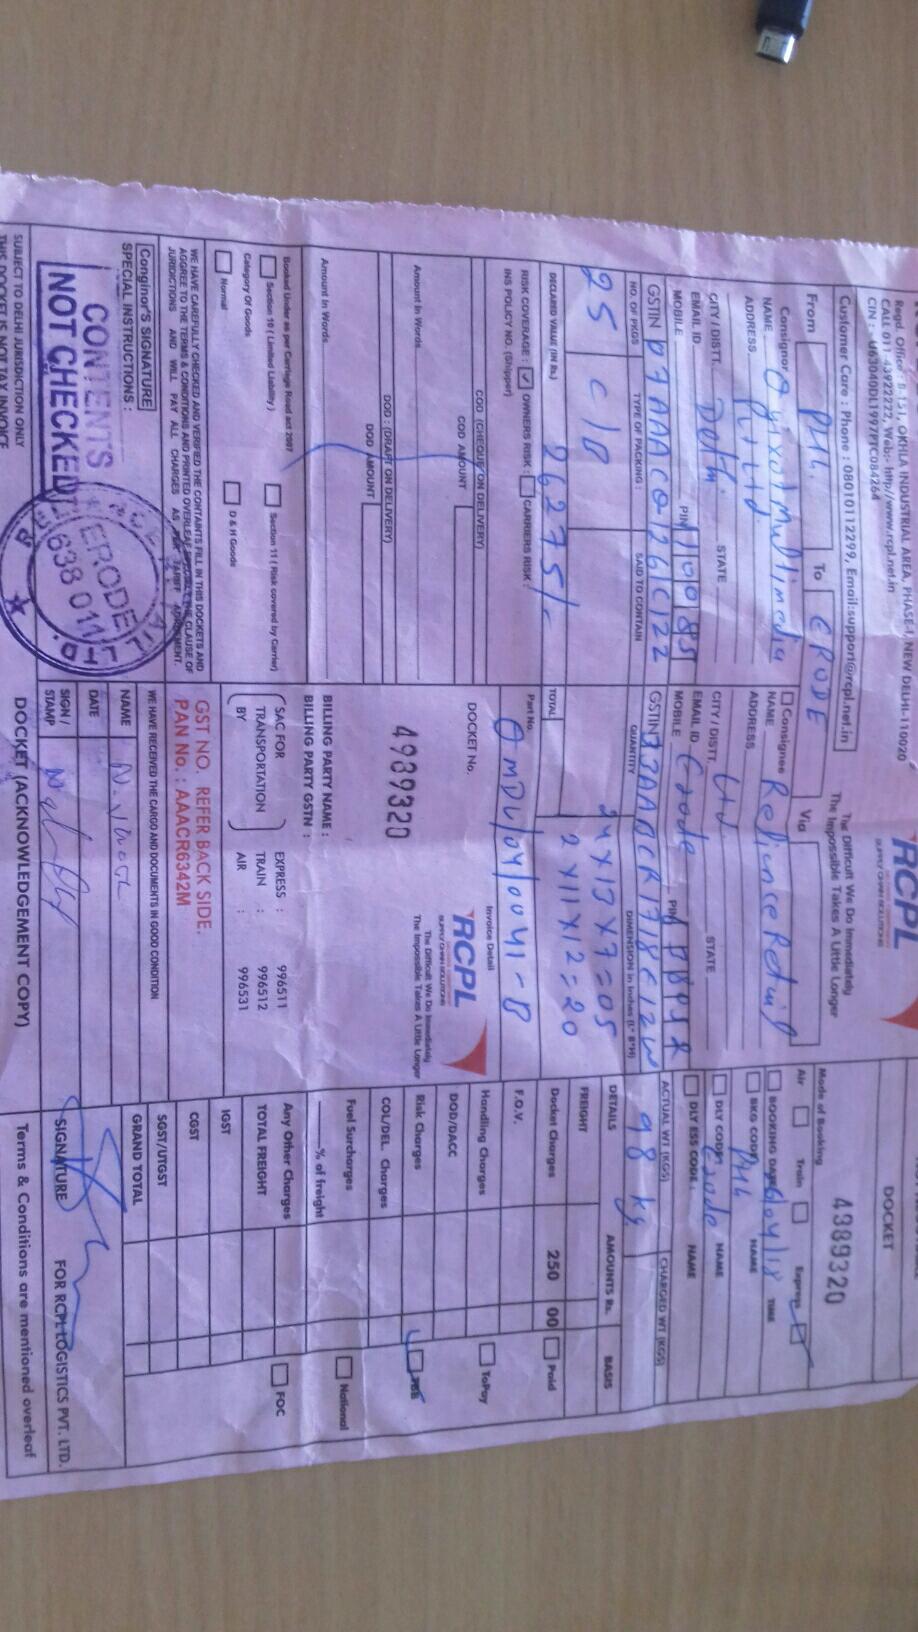 Regd. Office : B-151, OKHLA INDUSTRIAL AREA, PHASE-I, NEW DELHI-110020
CALL 011-39222222, Web: http://www.rcpl.net.in
CIN : U63040DL1997PTC084264
Customer Care : Phone : 08010112299, Email:support@rcpl.net.in
RCPL
SUPPLY CHAIN SOLUTIONS
The Difficult We Do Immediately
The Impossible Takes A Little Longer
DOCKET
4389320
From PHL To ERODE Via
Mode of Booking
Air Train Express
Consignor
NAME Onyixot Multimedia
ADDRESS Pvt Ltd.
CITY / DISTT. Delhi STATE
EMAIL ID PIN 110085
MOBILE
GSTIN 07AAACO1261C1ZZ
Consignee
NAME Reliance Retail
ADDRESS Ltd
CITY / DISTT. STATE
EMAIL ID Erode PIN
MOBILE
GSTIN 33AABCR1718E1ZW
BOOKING DATE 26/04/18 TIME
BKG CODE PHL NAME
DLY CODE Erode NAME
DLY ESS CODE : NAME
NO. OF PKGS TYPE OF PACKING : SAID TO CONTAIN
25 C/B
QUANTITY DIMENSION in Inches (L* B*H)
24 X 13 X 7 = 05
2 X 11 X 12 = 20
TOTAL
ACTUAL WT (KGS) CHARGED WT (KGS)
98 kg
DECLARED VALUE (IN Rs.) 26275/-
RISK COVERAGE : OWNERS RISK : CARRIERS RISK :
INS POLICY NO. (Shipper)
Part No. Invoice Detail
OMDL/04/0041-8
COD (CHEQUE ON DELIVERY)
COD AMOUNT
Amount In Words
DOD : (DRAFT ON DELIVERY)
DOD AMOUNT
Amount in Words
DOCKET No.
4939320
RCPL
SUPPLY CHAIN SOLUTIONS
The Difficult We Do Immediately
The Impossible Takes A Little Longer
BILLING PARTY NAME :
BILLING PARTY GSTN :
DETAILS AMOUNTS Rs. BASIS
FREIGHT
Docket Charges 250 00 Paid
F.O.V.
Handling Charges ToPay
DOD/DACC
Risk Charges TBB
COL/DEL Charges
Fuel Surcharges National
% of freight
Any Other Charges FOC
TOTAL FREIGHT
IGST
CGST
SGST/UTGST
GRAND TOTAL
Booked Under as per Carriage Road act 2007
Section 10 ( Limited Liability ) Section 11 ( Risk covered by Carrier)
Category Of Goods
Normal D & H Goods
SAC FOR TRANSPORTATION BY
EXPRESS : 996511
TRAIN : 996512
AIR : 996531
WE HAVE CAREFULLY CHECKED AND VERIFIED THE CONTAINTS FILL IN THIS DOCKETS AND
AGGREE TO THE TERMS & CONDITIONS AND PRINTED OVERLEAF CLAUSE OF
JURIDICTIONS AND WILL PAY ALL CHARGES AS PER TARIFF AGREEMENT.
GST NO. REFER BACK SIDE.
PAN No. : AAACR6342M
Conginor's SIGNATURE
SPECIAL INSTRUCTIONS :
CONTENTS
NOT CHECKED
ERODE
638 011
WE HAVE RECEIVED THE CARGO AND DOCUMENTS IN GOOD CONDITION
NAME
DATE
SIGN / STAMP
SIGNATURE FOR RCPL LOGISTICS PVT. LTD.
SUBJECT TO DELHI JURISDICTION ONLY
THIS DOCKET IS NOT TAX INVOICE
DOCKET (ACKNOWLEDGEMENT COPY)
Terms & Conditions are mentioned overleaf